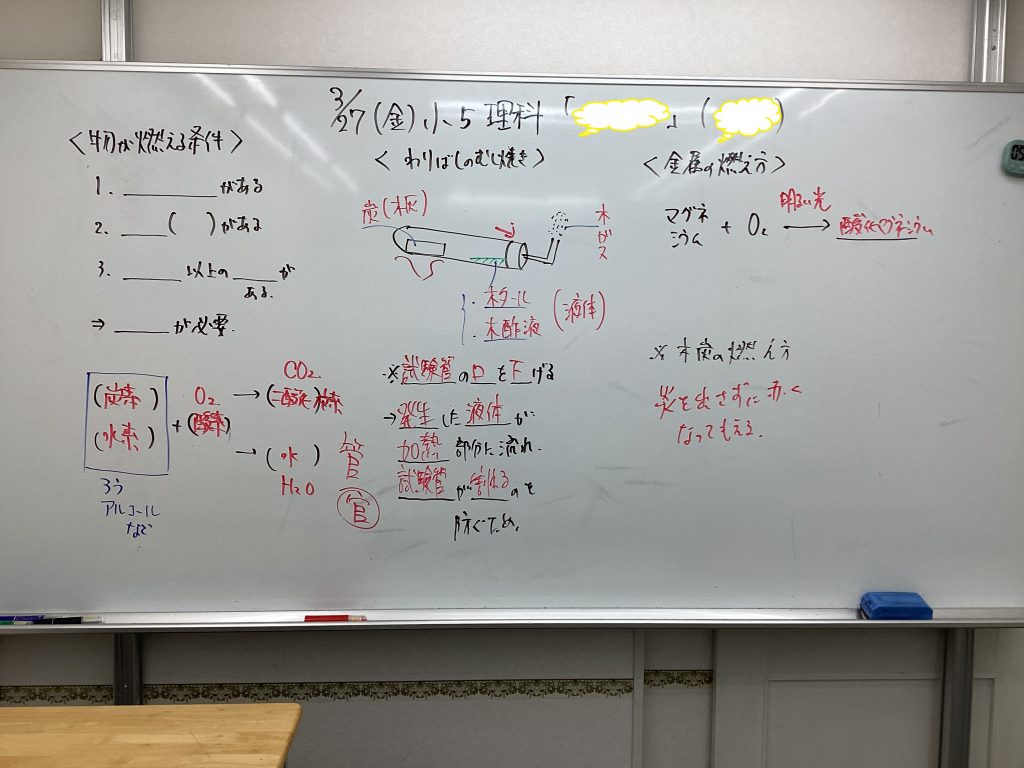 3/27(金)小5 理科「 」( )
<物が燃える条件>
1. ______がある
2. ____( )がある
3. ____以上の____が
ある.
⇒ ____が必要.
(炭素)
(水素)
+
O₂
(酸素)
→
CO₂
(二酸化炭素)
→ (水)
H₂O
管
官
ろう
アルコール
など
<わりばしのむし焼き>
炭(木炭)
木ガス
・木タール
・木酢液
(液体)
※試験管の口を下げる
→発生した液体が
加熱部分に流れ、
試験管が割れるのを
防ぐため。
<金属の燃え方>
マグネ
シウム
+ O₂
明るい光
→
酸化マグネシウム
※木炭の燃え方
炎を出さずに赤く
なってもえる.